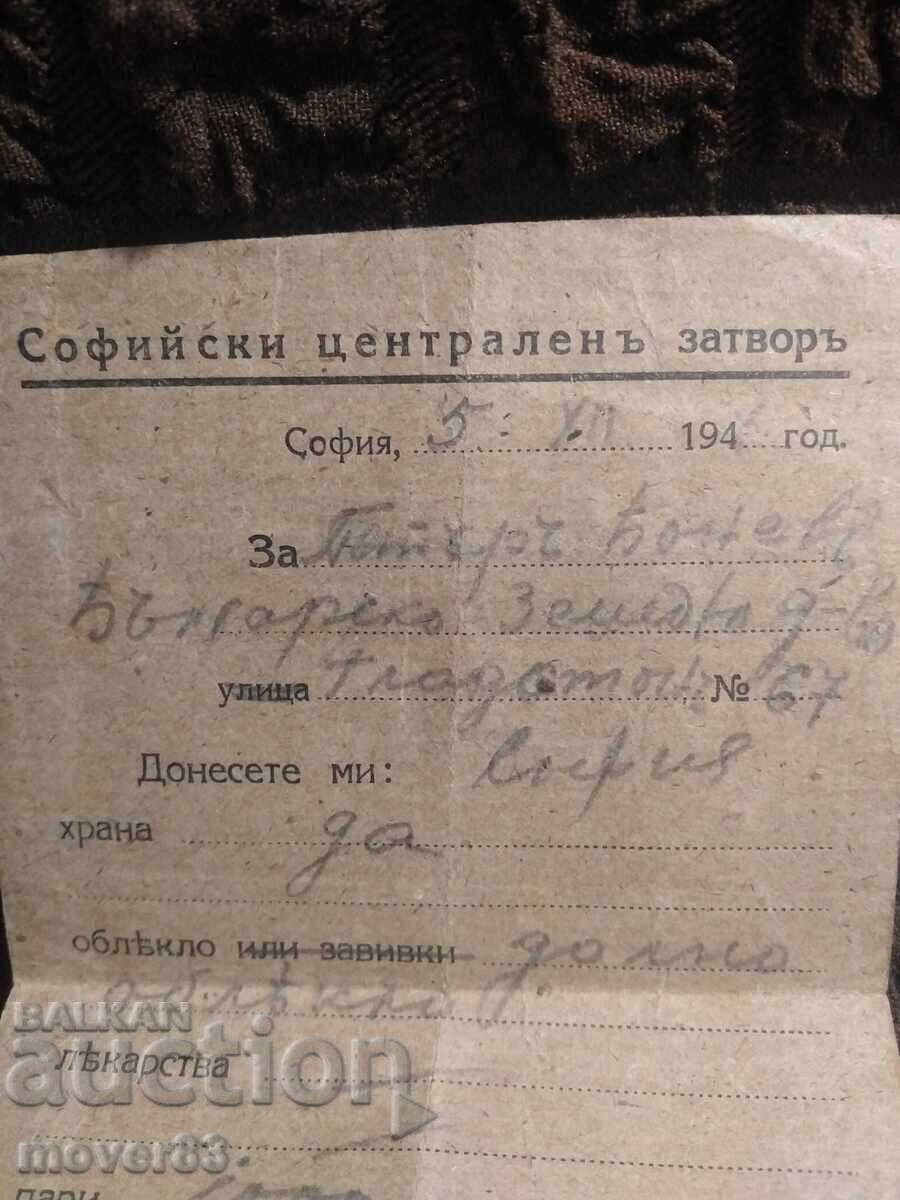 Софийски централенъ затворъ
София, 5 · XII 194 год.
За Петъръ Боневъ
Българско Земед
улица Гладстонъ № 67
Донесете ми: София
храна да
облѣкло или завивки долно
облѣкло
BALKAN
auction
лѣкарства
mover83
пари